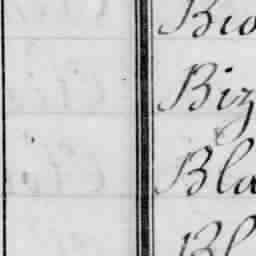 Bio
Biz
Bla
Bl